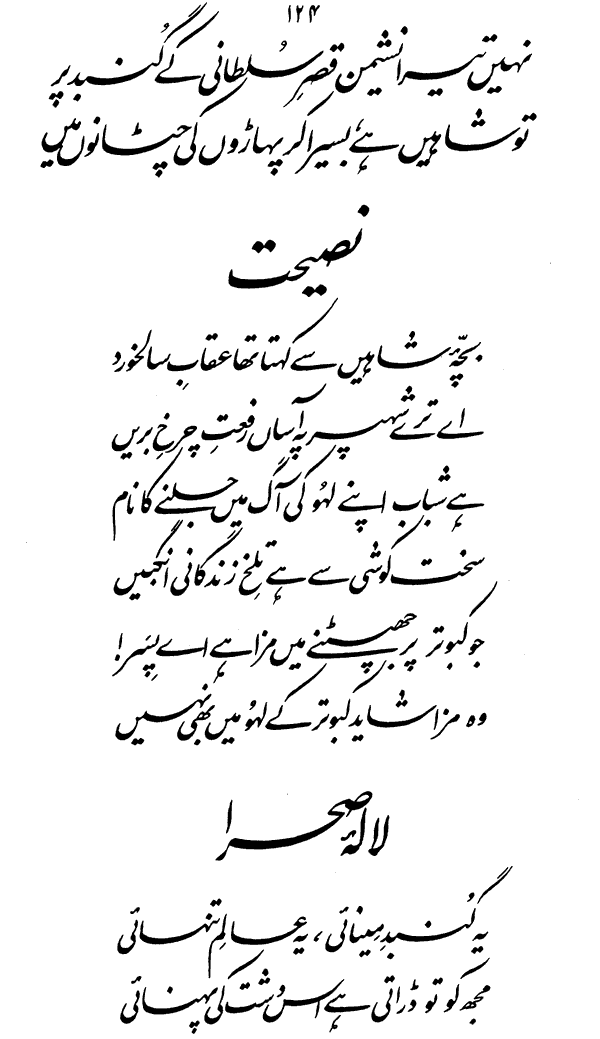 ۱۲۴
نہیں تیرا نشیمن قصرِ سُلطانی کے گُنبد پر
تو شاہیں ہے، بسیرا کر پہاڑوں کی چٹانوں میں
نصیحت
بچّۂ شاہیں سے کہتا تھا عقابِ سالخورد
اے ترے شہپر پہ آساں رفعتِ چرخِ بریں
ہے شباب اپنے لہُو کی آگ میں جلنے کا نام
سخت کوشی سے ہے تلخِ زندگانی انگبیں
جو کبوتر پر جھپٹنے میں مزا ہے اے پِسَر!
وہ مزا شاید کبوتر کے لہُو میں بھی نہیں
لالۂ صحرا
یہ گُنبدِ مینائی، یہ عالمِ تنہائی
مجھ کو تو ڈراتی ہے اس دشت کی پہنائی